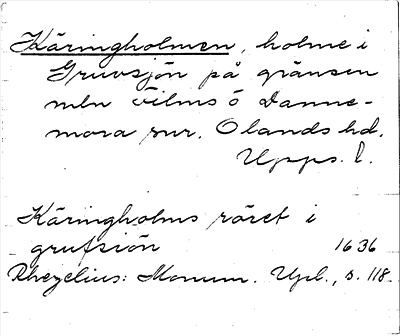 Käringholmen, holme i
Gruvsjön på gränsen
mln Films ò Danne-
mora snr. Olands hd.
Upps. l.
Käringholms röret i
grufsiön 1636
Rhezelius: Monum. Upl., s. 118.